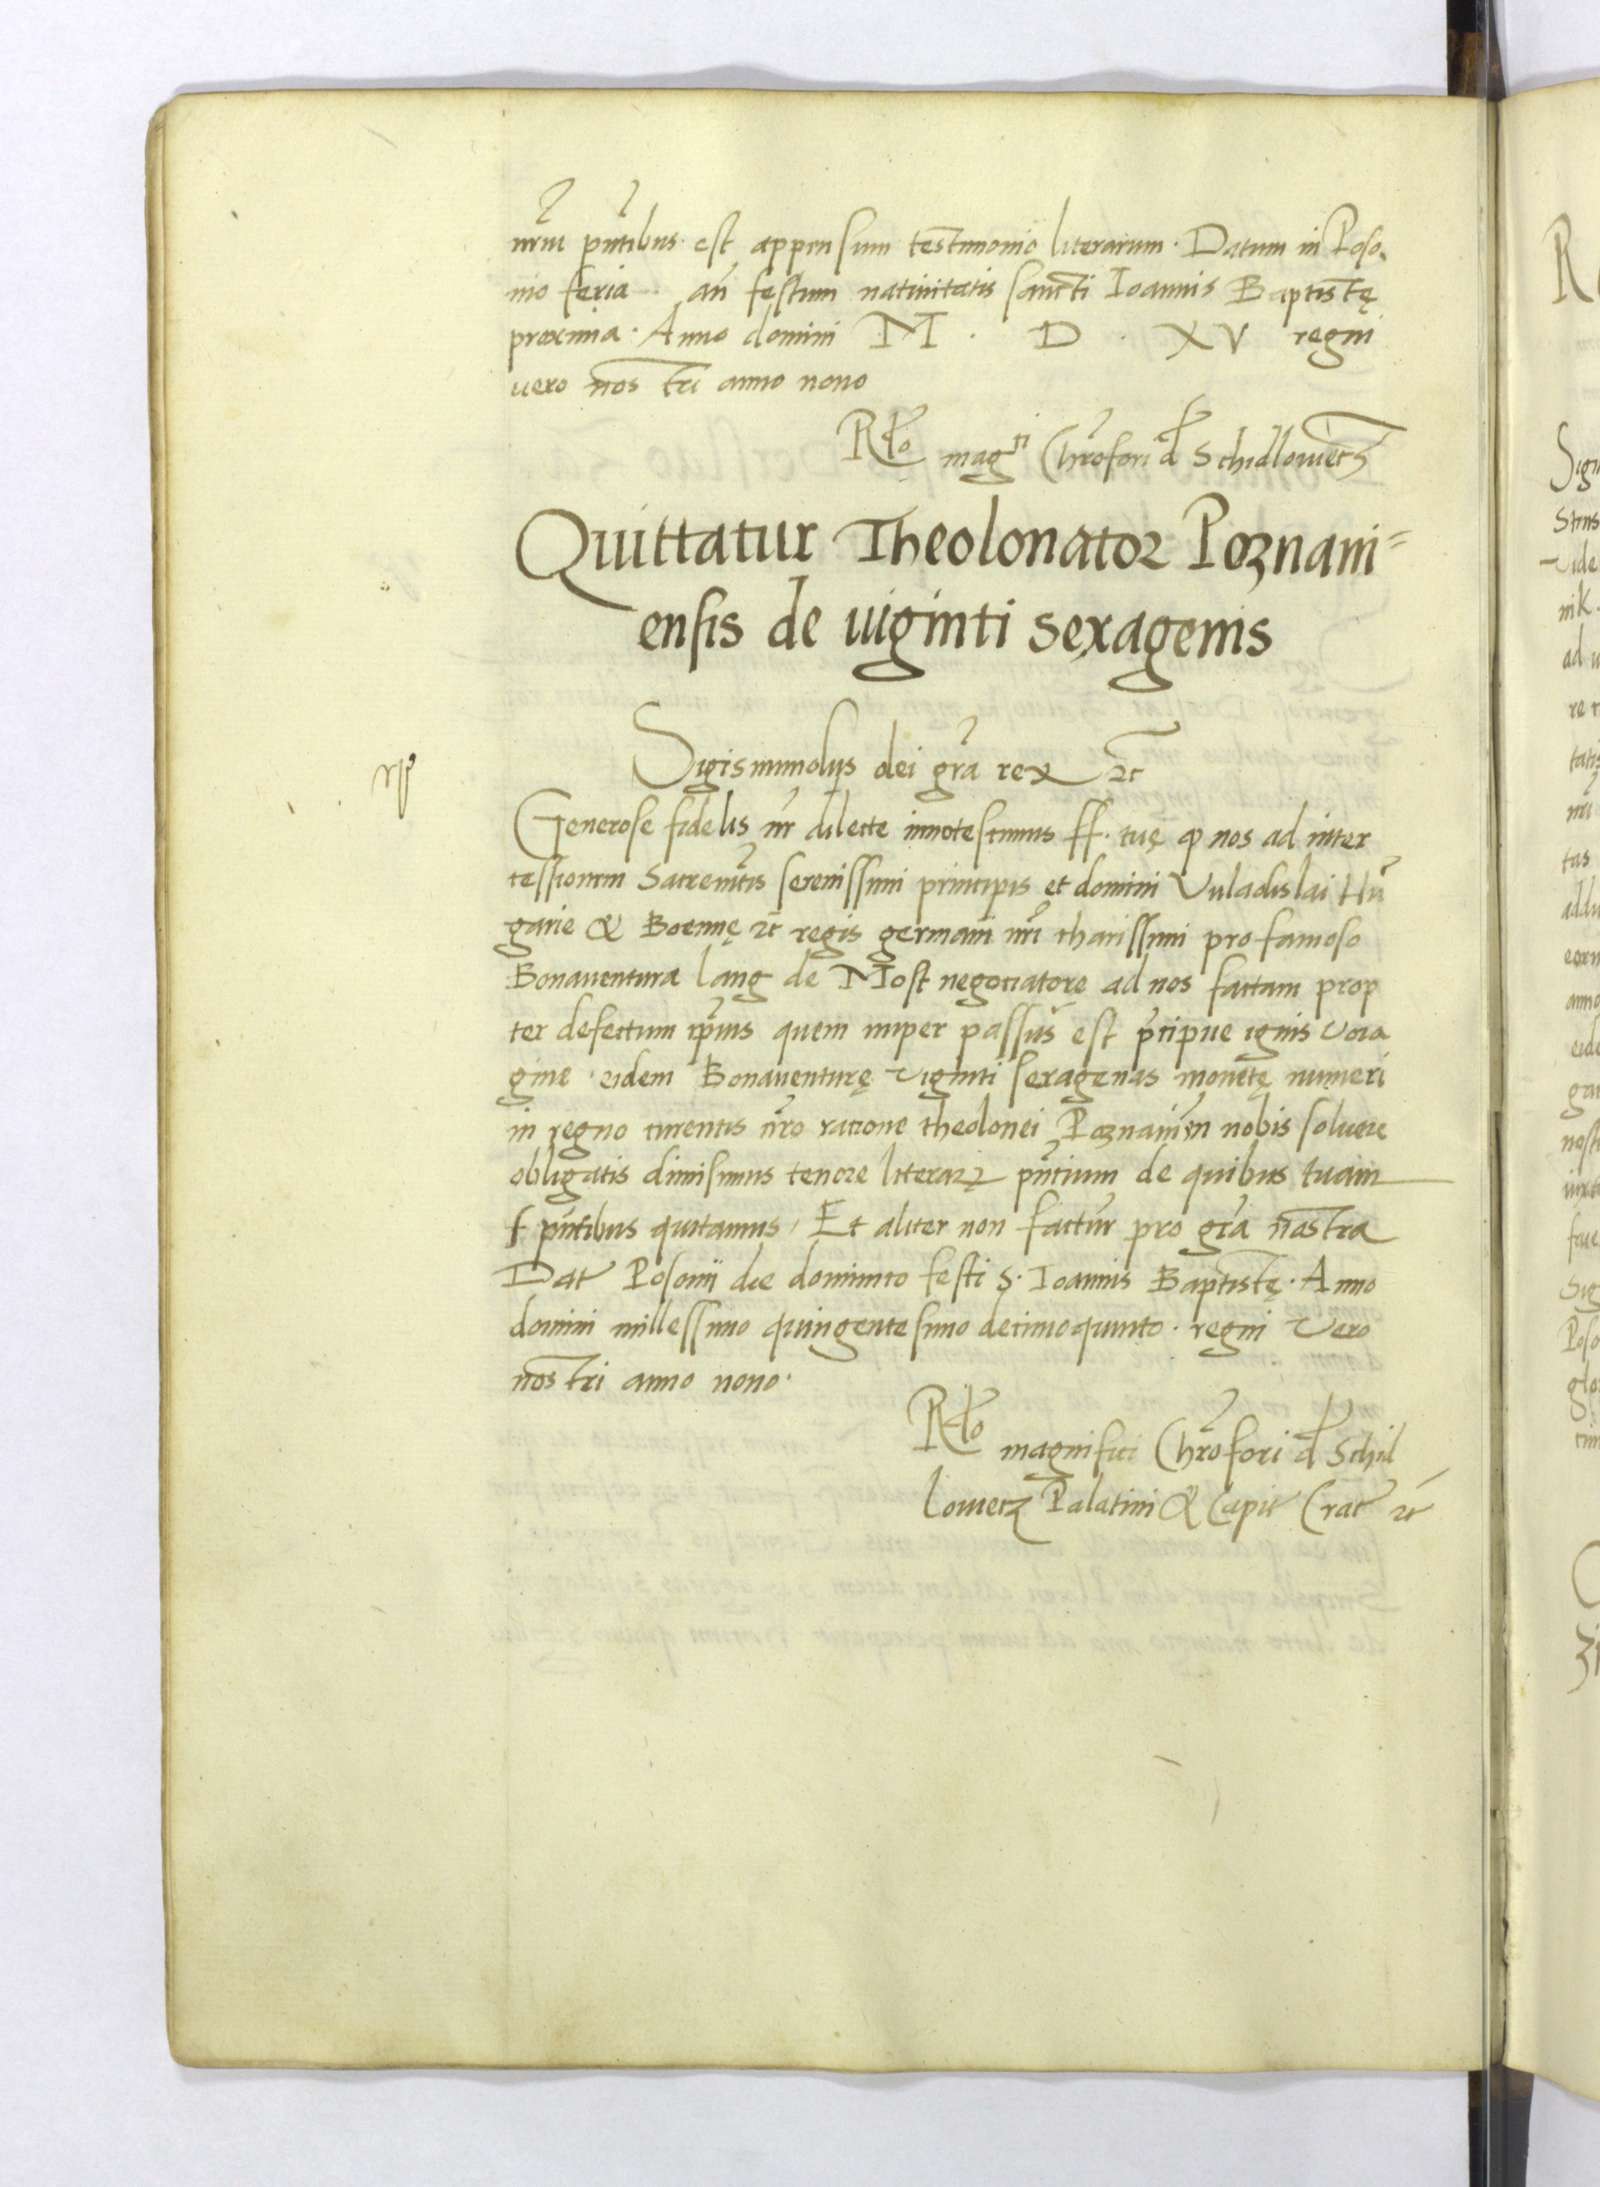 nr̃m pñtibus est appensum testimonio literarum. Datum in Poso-
nio feria an̄ festum natiuitatis sancti Ioannis Baptistę
proxima. Anno domini M. D. XV regni
uero nostri anno nono
Rlo mag^ci Chr̃ofori de Schidlowecz
Quittatur Theolonator Poznani=
ensis de uiginti sexagenis
Sigismundus dei gr̃a rex etc̃
Generose fidelis nr̃ dilecte innotescimus ff. tuę ꝙ nos ad inter
cessionem Sacrem̃tis serenissimi principis et domini Vuladislai Hũ
garie & Boemię etc̃ regis germani nr̃i charissimi pro famoso
Bonauentura lang de Most negociatore ad nos factam prop
ter defectum ip̃ius quem nuper passus est p̃cipue ignis vora
gine. eidem Bonauenturę viginti sexagenas monetę numeri
in regno currentis nr̃o ratione theolonei Poznanien̄ nobis soluere
obligatis dimisimus tenore literarꝝ pñtium de quibus tuam
f pñtibus quitamus, Et aliter non factur̃ pro gr̃a nostra
Dat̃ Posonii die dominico festi S. Ioannis Baptistę. Anno
domini millessimo quingentesimo decimoquinto. regni vero
nostri anno nono.
Rlo magnifici Chr̃ofori de Schid
lowecz Palatini & Capit̃ Crac̃ etc̃